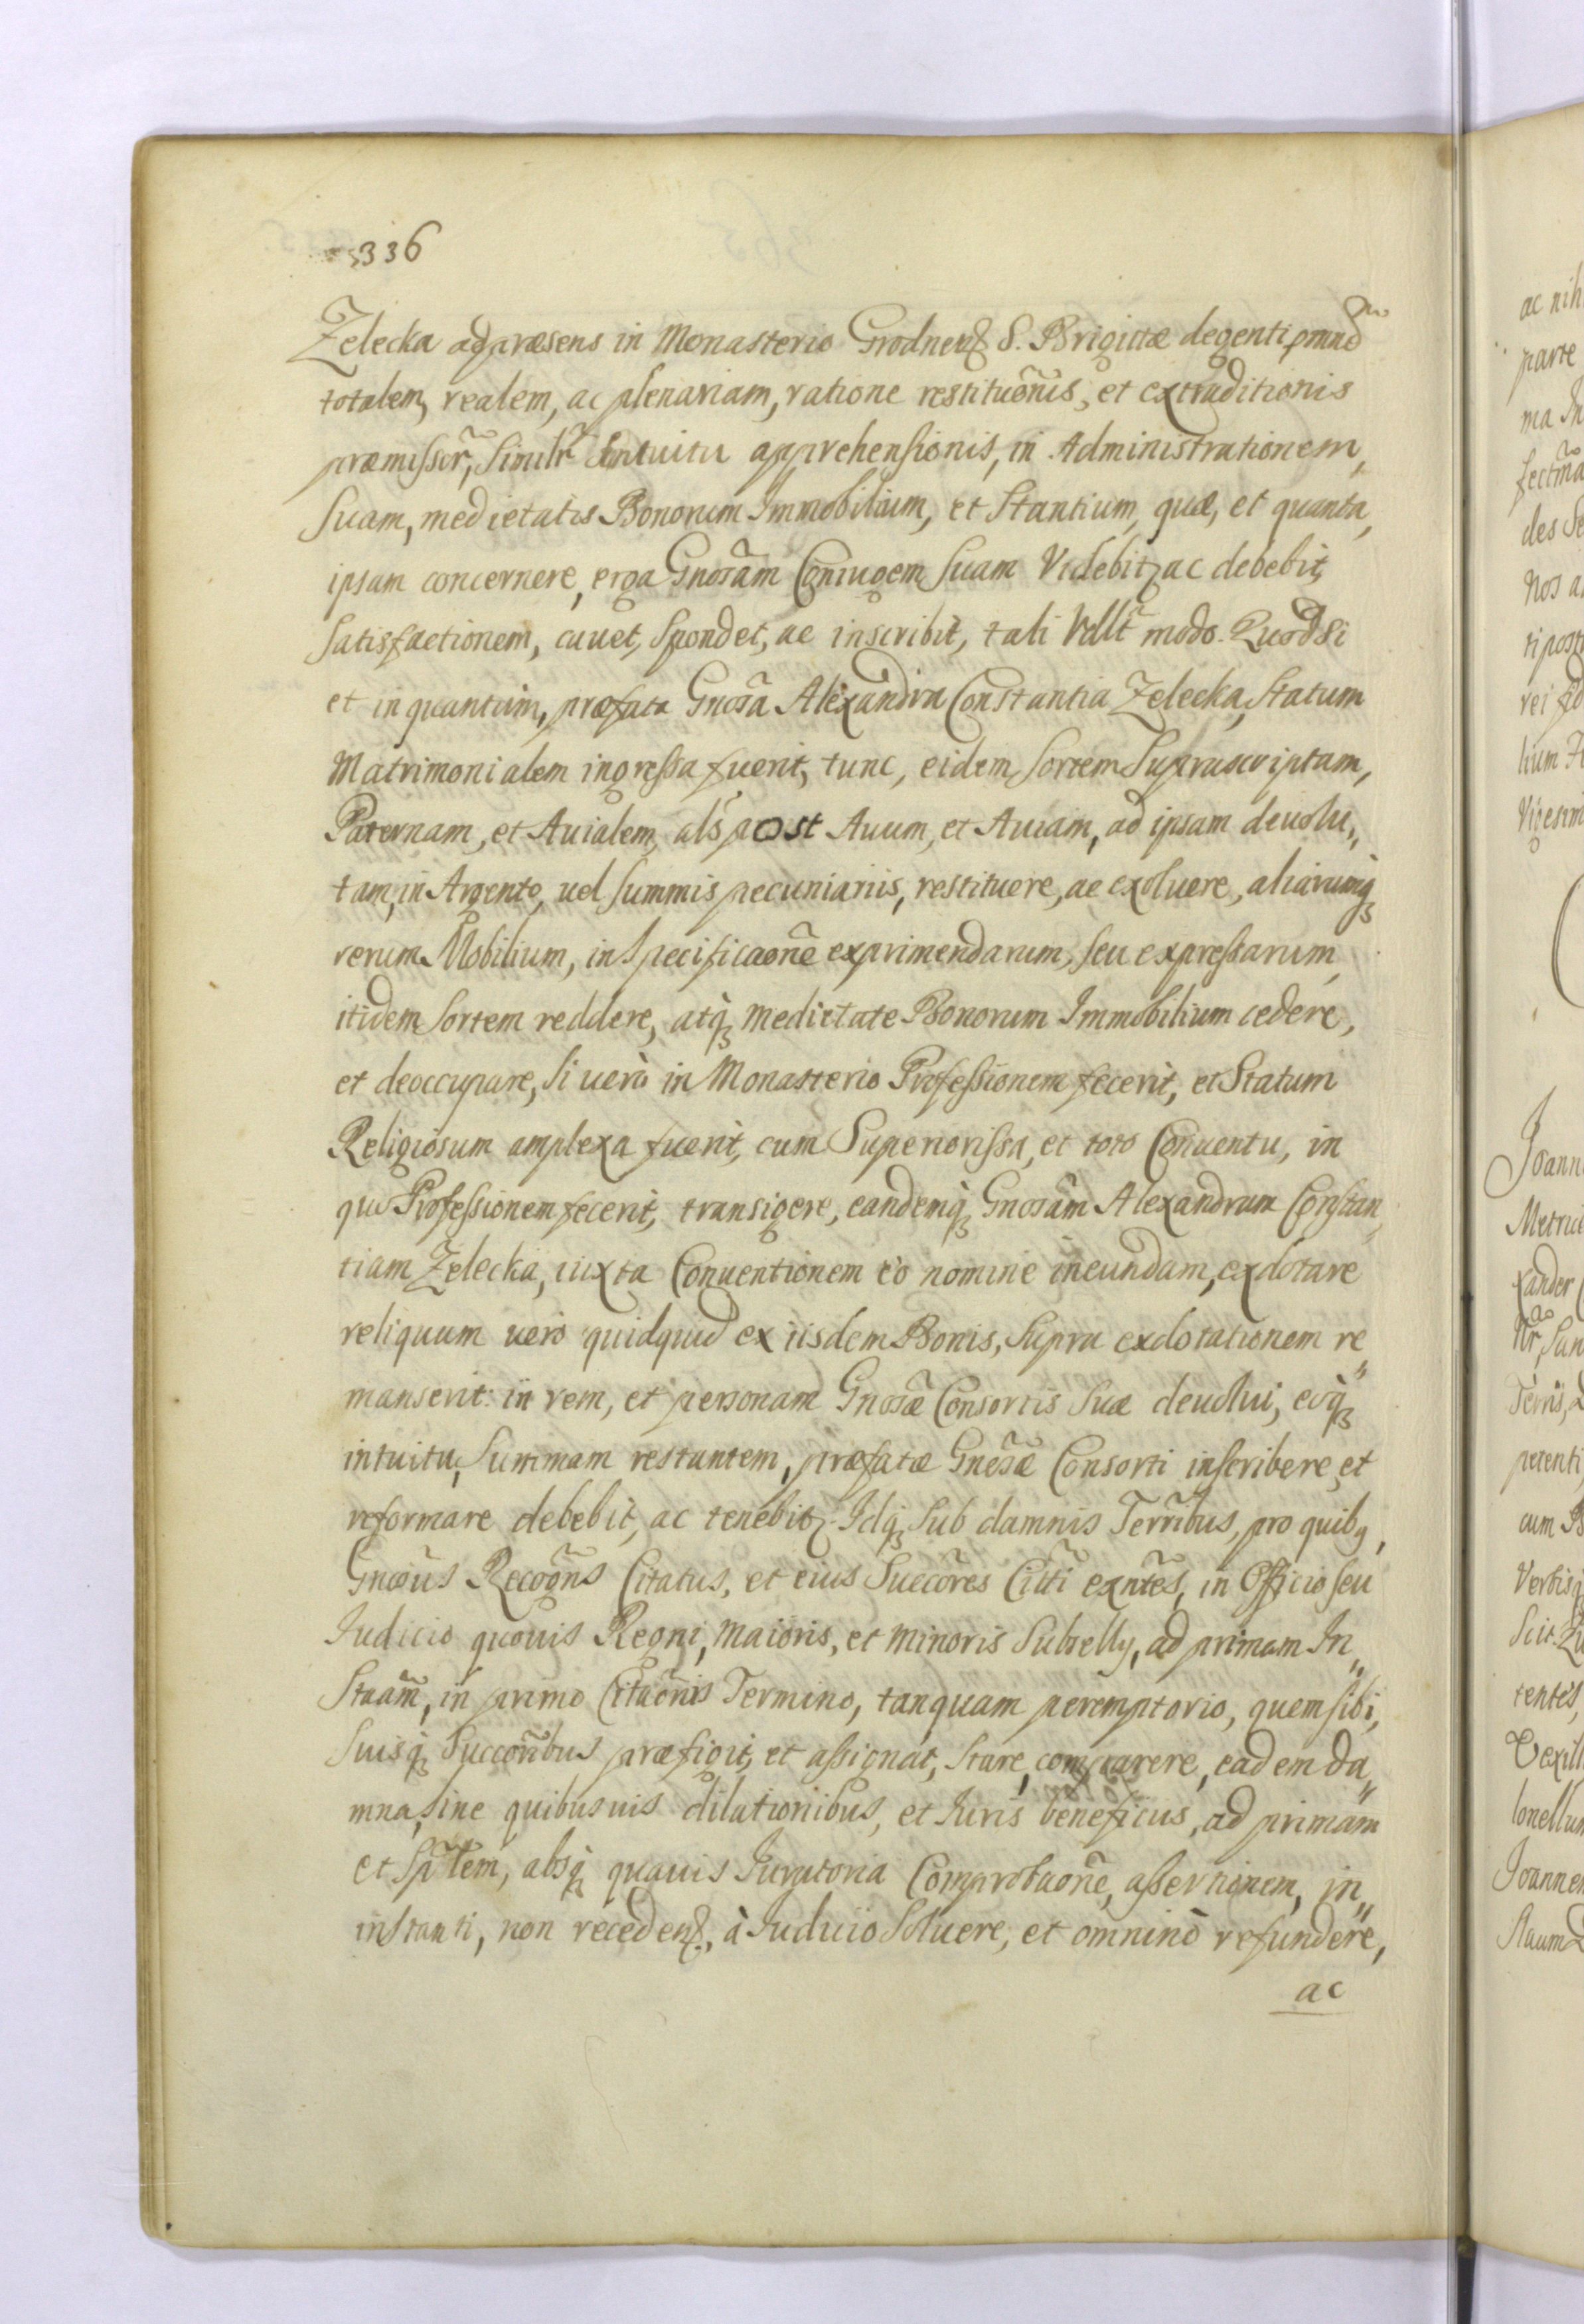 336
Zelecka ad præsens in Monasterio Grodnen S. Brigittæ degenti omnẽ
totalem, realem, ac plenariam, ratione restituõnis, et extraditionis
præmissor̃, Similr̃ Intuitu apprehensionis, in Administrationem,
Suam, medietatis Bonorum Immobilium, et Stantium, quæ, et quanta,
ipsam concernere, erga Gnosãm Coniugem Suam Videbitȝ ac debebit,
satisfactionem, cauet, spondet, ac inscribit, tali Vidlt̃ modo. Quod Si
et in quantum, præfata Gnosã Alexandra Constantia Zelecka, Statum
Matrimonialem ingressa fuerit, tunc, eidem sortem Suprascriptam,
Paternam, et Auialem, als̃ post Auum, et Auiam, ad ipsam deuolu„
tam, in Argento, uel Summis pecuniariis, restituere, ac exoluere, aliarumqȝ
rerum Mobilium, in Specificaoñe exprimendarum, seu expressarum,
itidem sortem reddere, atqȝ medietate Bonorum Immobilium cedere,
et deoccupare, Si uerò in Monasterio Professionem fecerit, et Statum
Religiosum amplexa fuerit, cum Superiorissa, et toto Conuentu, in
quo Professionem fecerit, transigere, eandemqȝ Gnosãm Alexandram Constan„
tiam Zelecka, iuxta Conuentionem eo nomine ineundam, exdotare
reliquum uero quidquid ex iisdem Bonis, Supra exdotationem re„
manserit: in rem, et personam Gnosæ̃ Consortis Suæ deuolui, eoqȝ
intuitu, Summam restantem, præfatæ Gnosæ̃ Consorti inscribere, et
reformare debebit, ac tenebitȝ. Idqȝ Sub damnis Terrĩbus, pro quibȝ,
Gnosũs Recogñs Citatus, et eius Succõres Citt̃i exñtes, in Officio seu
Iudicio quouis Regni, Maioris, et Minoris Subselly, ad primam In„
Stañm, in primo Citaõnis Termino, tanquam peremptorio, quem sibi,
Suisqȝ Succorĩbus præfigit, et assignat, Stare, comparere, eadem da„
mna, sine quibusuis dilationibus, et Iuris beneficiis, ad primam
et Sp̃lem, absqȝ quauis Iuratoria Comprobaoñe, assertionem, in„
instanti, non receden, à Iudicio Soluere, et omninò refundere,
ac